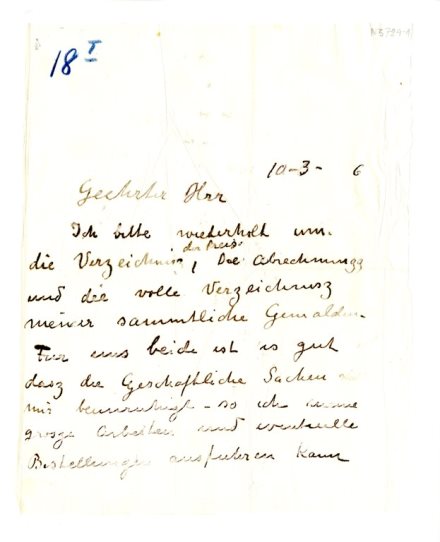 18 I
N3724-1
10-3- 6
Geehrter Herr
Ich bitte wiederholt um
der Preise
die Verzeichniss, Die Abrechnung
und die volle Verzeichnisz
meiner sammtliche Gemalden.
Fur uns beide ist es gut
dasz die Geschaftliche Sachen
mis beunruhigt - so ich meine
grosze Arbeiten und eventuelle
Bestellungen ausfuhren kann